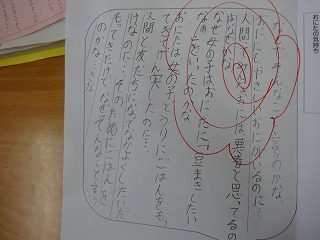 おにたの気持ち
そんなこと言うのかな。
おににもやさしいおにがいるのに…
人間はみんなおには悪者と思ってるの
なぜ女の子はおにたに「豆まきしたい
なぁ」といったのかな。
おにたは女の子
にごはんをも
てきて
したのに…
人間と友だちになってなかよくしたいだ
けなのに…そのためにごはんを
もってきたけど、なぜそんなこと言う
のかな…